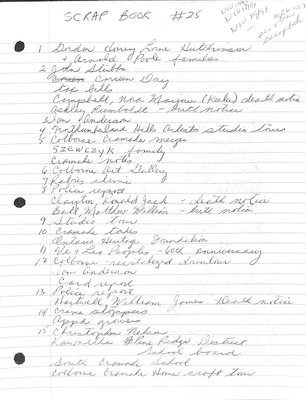 SCRAP BOOK #25
1 Gordon Honey Line Hutchinson
& Arnold Poole families
2 John Stubbs
Careen Day
tax bills
Campbell, Nora Marjorie (Keeler) death notice
Ashley Rumboldt - birth notice
3 Jon Anderson
4 Northumberland Hills Artists studio tours
5 Colborne - Cramahe merger
SZEWCZYK family
Cramahe notes
6 Colborne Art Gallery
7 Rabies clinic
8 Police report
Clayton, Ronald Jack - death notice
Ball, Matthew William - birth notice
9 Studio tour
10 Cramahe taxes
Ontario Heritage Foundation
11 Vic & Les Peoples - 60th anniversary
12 Colborne - revitalized downtown
Jon Anderson
Card report
13 Police report
Hartwell William James Death notice
14 Crime stoppers
Apple growers
15 Christopher Nelson
Kawartha Pine Ridge District
School board
South Cramahe School
Colborne Cramahe Home craft tour